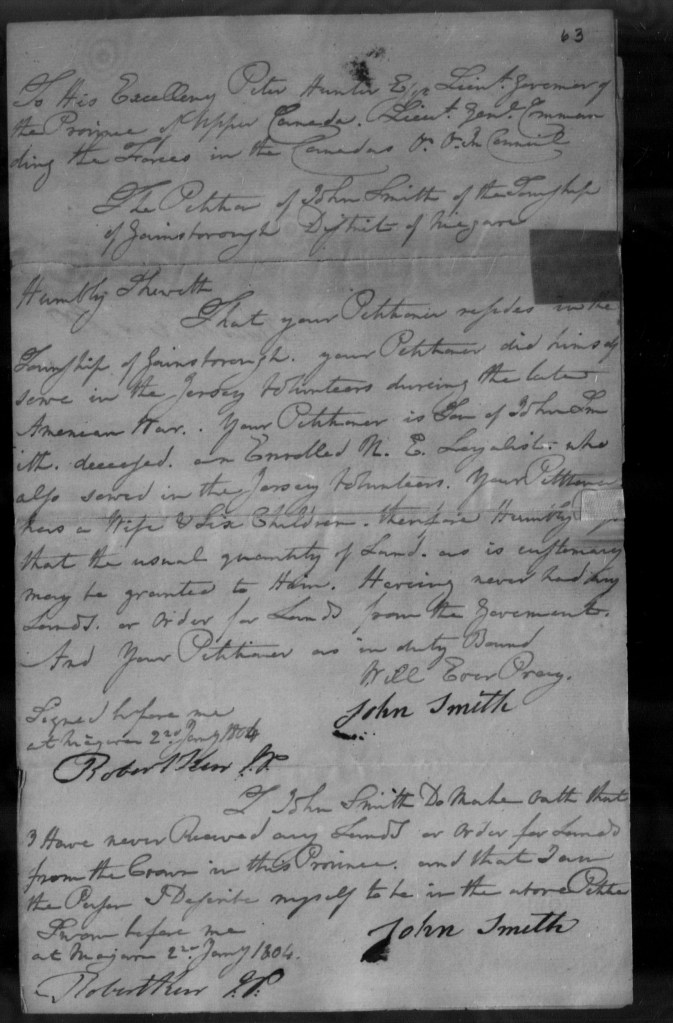 63
To His Excellency Peter Hunter Esqr. Lieut. Governor of
the Province of Upper Canada. Lieut. Genl. Comman
ding the Forces in the Canadas &. &. In Council
The Petition of John Smith of the Township
of Gainsborough District of Niagara
Humbly Sheweth
That your Petitioner resides in the
Township of Gainsborough. your Petitioner did himself
serve in the Jersey Volunteers during the late
American War.. Your Petitioner is Son of John Sm
ith. deceased. an Enrolled U. E. Loyalist. who
also served in the Jersey Volunteers. Your Petitioner
has a Wife & Six Children. therefore Humbly
that the usual quantity of Land. as is customary
may be granted to Him. Having never had any
Lands. or order for Lands from the Goverment.
And Your Petitioner as in duty Bound
Will Ever Pray.
John Smith
Signed before me
at Niagara 2nd Jany 1804
Robert Kerr J.P.
I John Smith Do Make oath that
I Have never Received any Lands or order for Lands
from the Crown in this Province. and that I am
the Person I Describe myself to be in the above Petition
Sworn before me
at Niagara 2nd Jany 1804.
John Smith
Robert Kerr J.P.